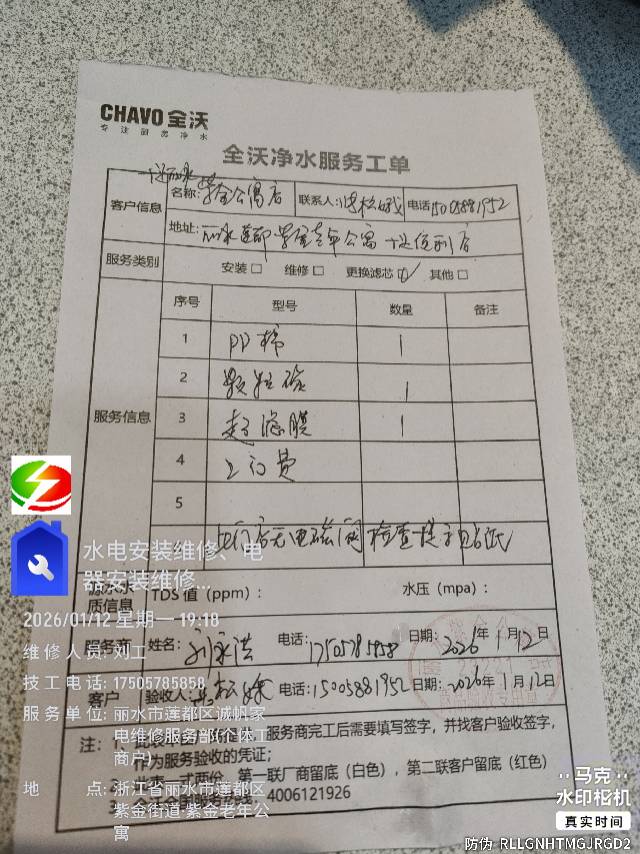 CHAVO 全沃
专注厨房净水
全沃净水服务工单
客户信息
名称: 紫金公寓店
联系人:
电话 15005881952
地址: 丽水莲都紫金老年公寓 十足便利店
服务类别
安装 □ 维修 □ 更换滤芯 ☑ 其他 □
服务信息
序号 型号 数量 备注
1 PP棉 1
2 颗粒碳 1
3 超滤膜 1
4 上门费
5
此门店无电磁阀 检查
质信息 TDS 值（ppm）: 水压（mpa）:
服务商 姓名: 刘永洪 电话: 17505785858 日期: 2026年 1月12日
客户 验收人: 电话: 15005881952 日期: 2026年 1月12日
注:
服务商完工后需要填写签字，并找客户验收签字，
作为服务验收的凭证；
一式两份，第一联厂商留底（白色），第二联客户留底（红色）
4006121926
水电安装维修、电
器安装维修...
2026/01/12 星期一 19:18
维修人员: 刘工
技工电话: 17505785858
服务单位: 丽水市莲都区诚帆家
电维修服务部(个体工
商户)
地点: 浙江省丽水市莲都区
紫金街道·紫金老年公
寓
马克
水印相机
真实时间
防伪 RLLGNHTMGJRGD2